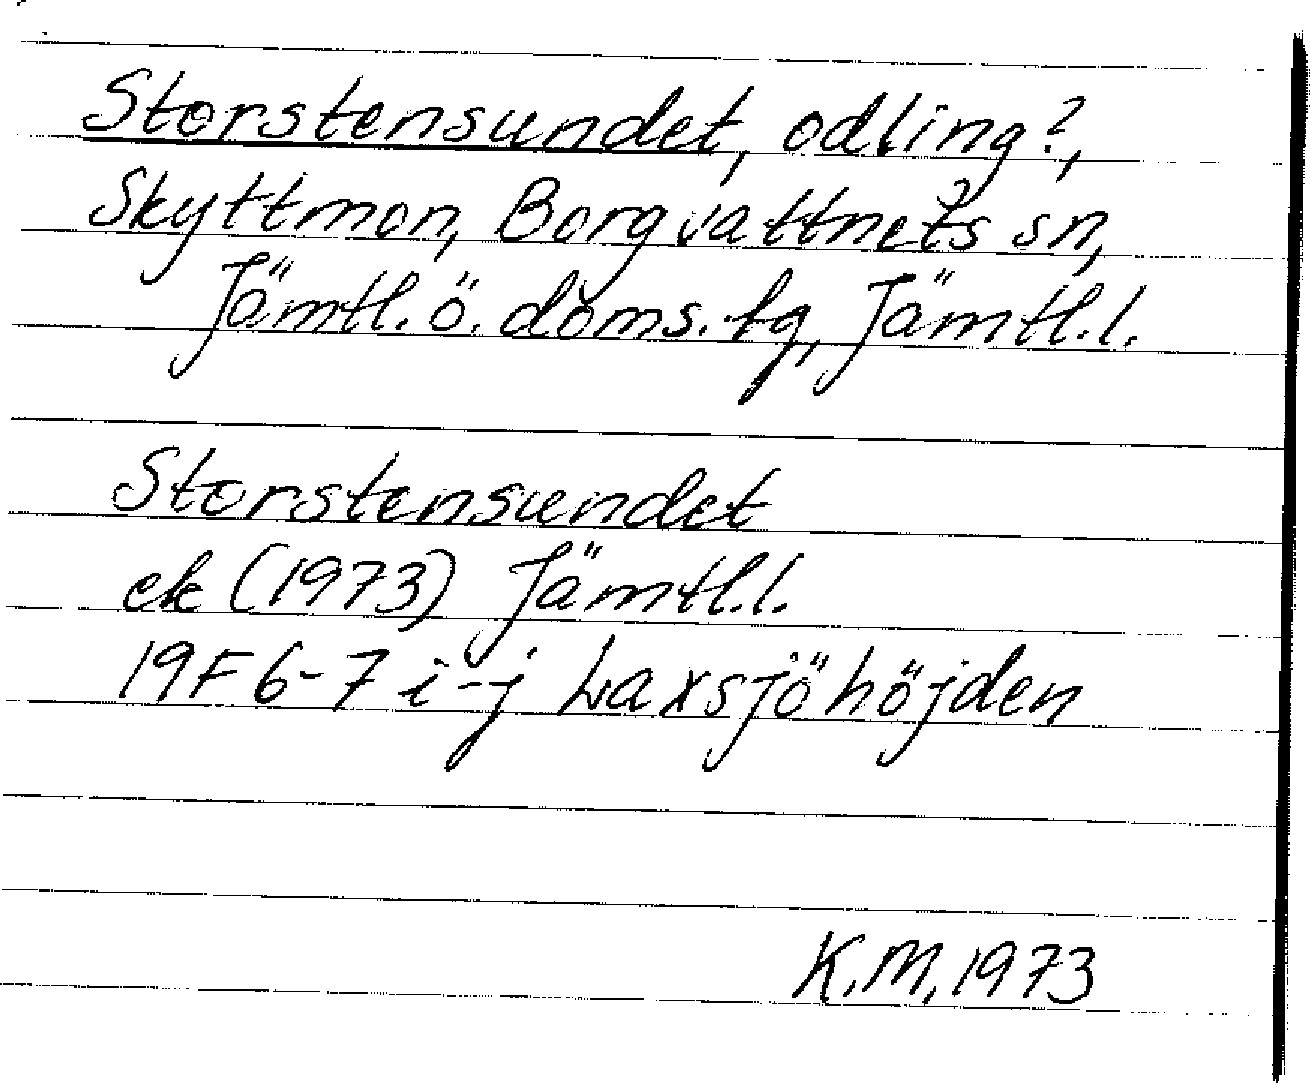 Storstensundet, odling?,
Skyttmon, Borgvattnets sn,
Jämtl. ö. doms. tg, Jämtl.l.
Storstensundet
ek (1973) Jämtl.l.
19F 6-7 i-j Laxsjöhöjden
K.M, 1973